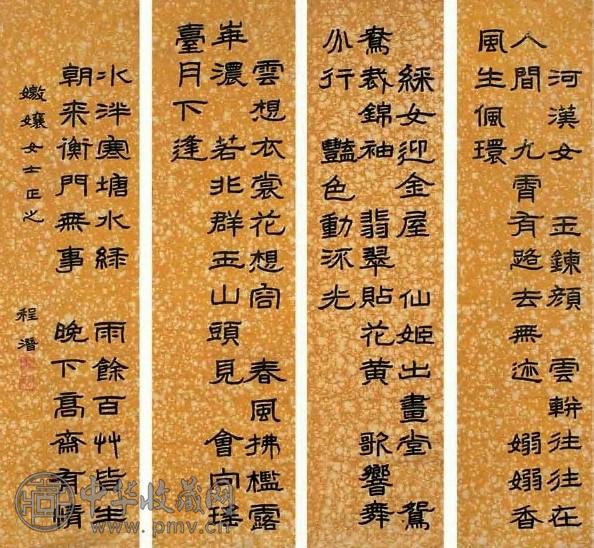 河漢女 玉鍊顏 雲軿往往在
人間 九霄有路去無迹 嫋嫋香
風生佩環
綵女迎金屋 仙姬出畫堂 鴛
鴦裁錦袖 翡翠貼花黃 歌響舞
分行 豔色動流光
雲想衣裳花想容 春風拂檻露
華濃 若非群玉山頭見 會向瑤
臺月下逢
冰泮寒塘水綠 雨餘百艸皆生
朝来衡門無事 晚下高齋有情
孃女士正之 程潛
中华收藏网
www.pmv.cn